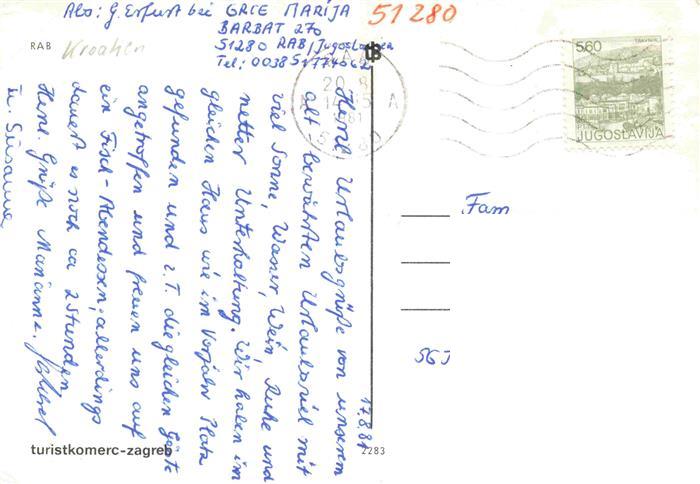 Abs: G. Erfurt bei GRCE MARIJA
BARBAT 270
51280 RAB/Jugoslawien
Tel: 0038517740
51280
RAB
Kroatien
5,60
TRAVNIK
JUGOSLAVIJA
20.8
1981
A
17.8.81
Herzl. Urlaubsgrüße von unserem
alt bewährten Urlaubsziel mit
viel Sonne, Wasser, Wein, Ruhe und
netter Unterhaltung. Wir haben im
gleichen Haus wie im Vorjahr Platz
gefunden und z.T. die gleichen Gäste
angetroffen und freuen uns auf
ein Fisch-Abendessen, allerdings
dauert es noch ca 2 Stunden
Herzl. Grüße Marianne,
u. Susanne
Fam
turistkomerc-zagreb
2283